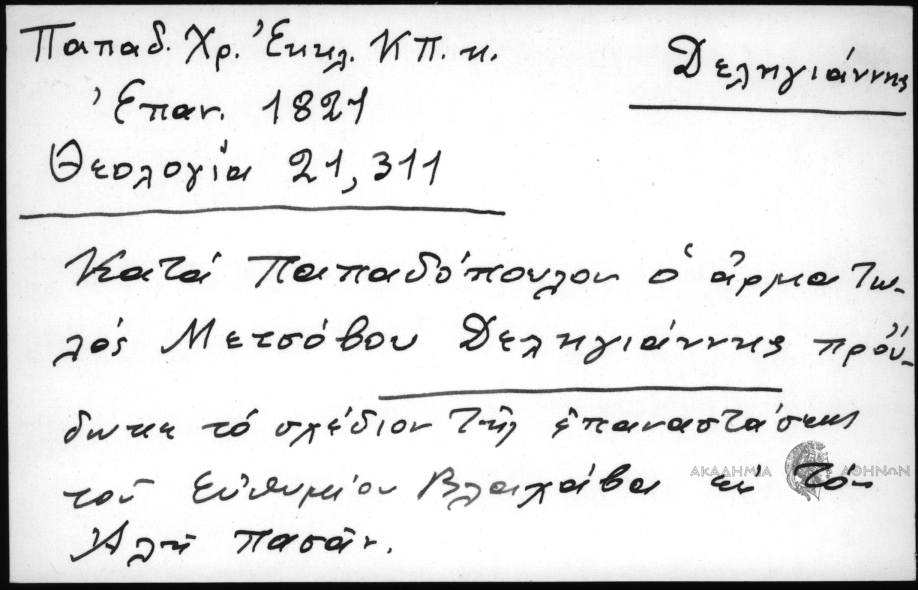 Παπαδ. Χρ. Ἐκκλ. ΚΠ. κ.
Ἐπαν. 1821
Θεολογία 21, 311
Δεληγιάννης
Κατά Παπαδόπουλον ὁ ἁρματω-
λός Μετσόβου Δεληγιάννης προὔ-
δωκε τό σχέδιον τῆς ἐπαναστάσεως
τοῦ Εὐθυμίου Βλαχάβα εἰς τόν
Ἀλῆ πασᾶν.
ΑΚΑΔΗΜΙΑ ΑΘΗΝΩΝ